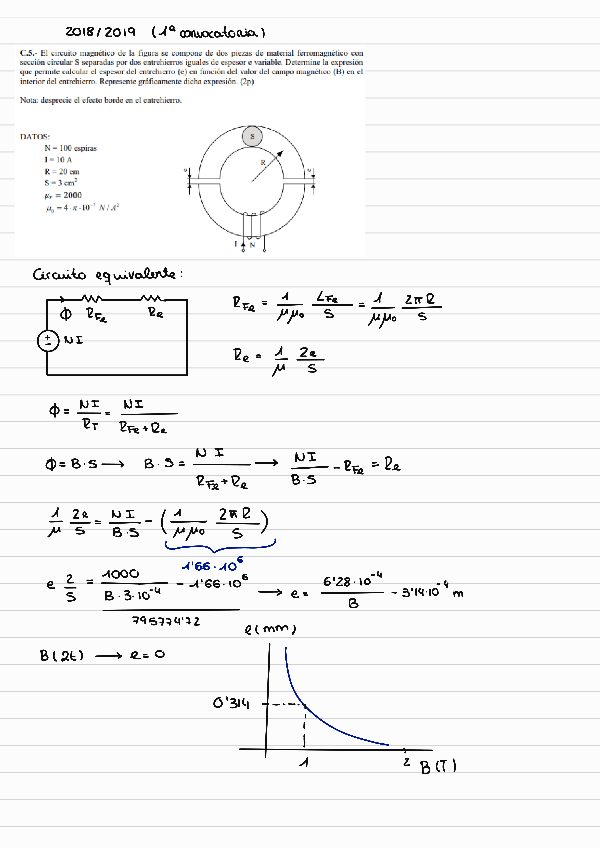 2018/2019 (1ª convocatoria)
C.5.- El circuito magnético de la figura se compone de dos piezas de material ferromagnético con
sección circular S separadas por dos entrehierros iguales de espesor e variable. Determine la expresión
que permite calcular el espesor del entrehierro (e) en función del valor del campo magnético (B) en el
interior del entrehierro. Represente gráficamente dicha expresión. (2p)
Nota: desprecie el efecto borde en el entrehierro.
DATOS:
N = 100 espiras
I = 10 A
R = 20 cm
S = 3 cm²
μr = 2000
μ0 = 4·π·10⁻⁷ N/A²
S
R
e e
I N
Circuito equivalente:
Φ R_Fe Re
NI
R_Fe = 1/μμ0 L_Fe/S = 1/μμ0 2πR/S
Re = 1/μ 2e/S
Φ = NI/R_T = NI/(R_Fe + Re)
Φ = B·S → B·S = NI/(R_Fe + Re) → NI/(B·S) - R_Fe = Re
1/μ 2e/S = NI/(B·S) - (1/μμ0 2πR/S)
1'66·10⁶
e 2/S = 1000/(B·3·10⁻⁴) - 1'66·10⁶ → e = 6'28·10⁻⁴/B - 3'14·10⁻⁴ m
795774'72
B(2t) → e=0
e(mm)
0'314
1 2 B(T)